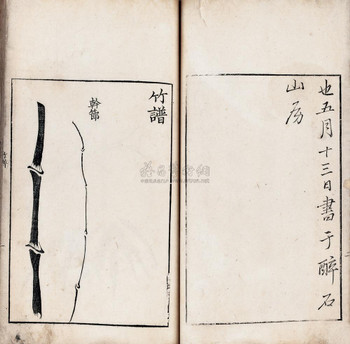 也五月十三日書于醉石
山房
竹譜
幹節